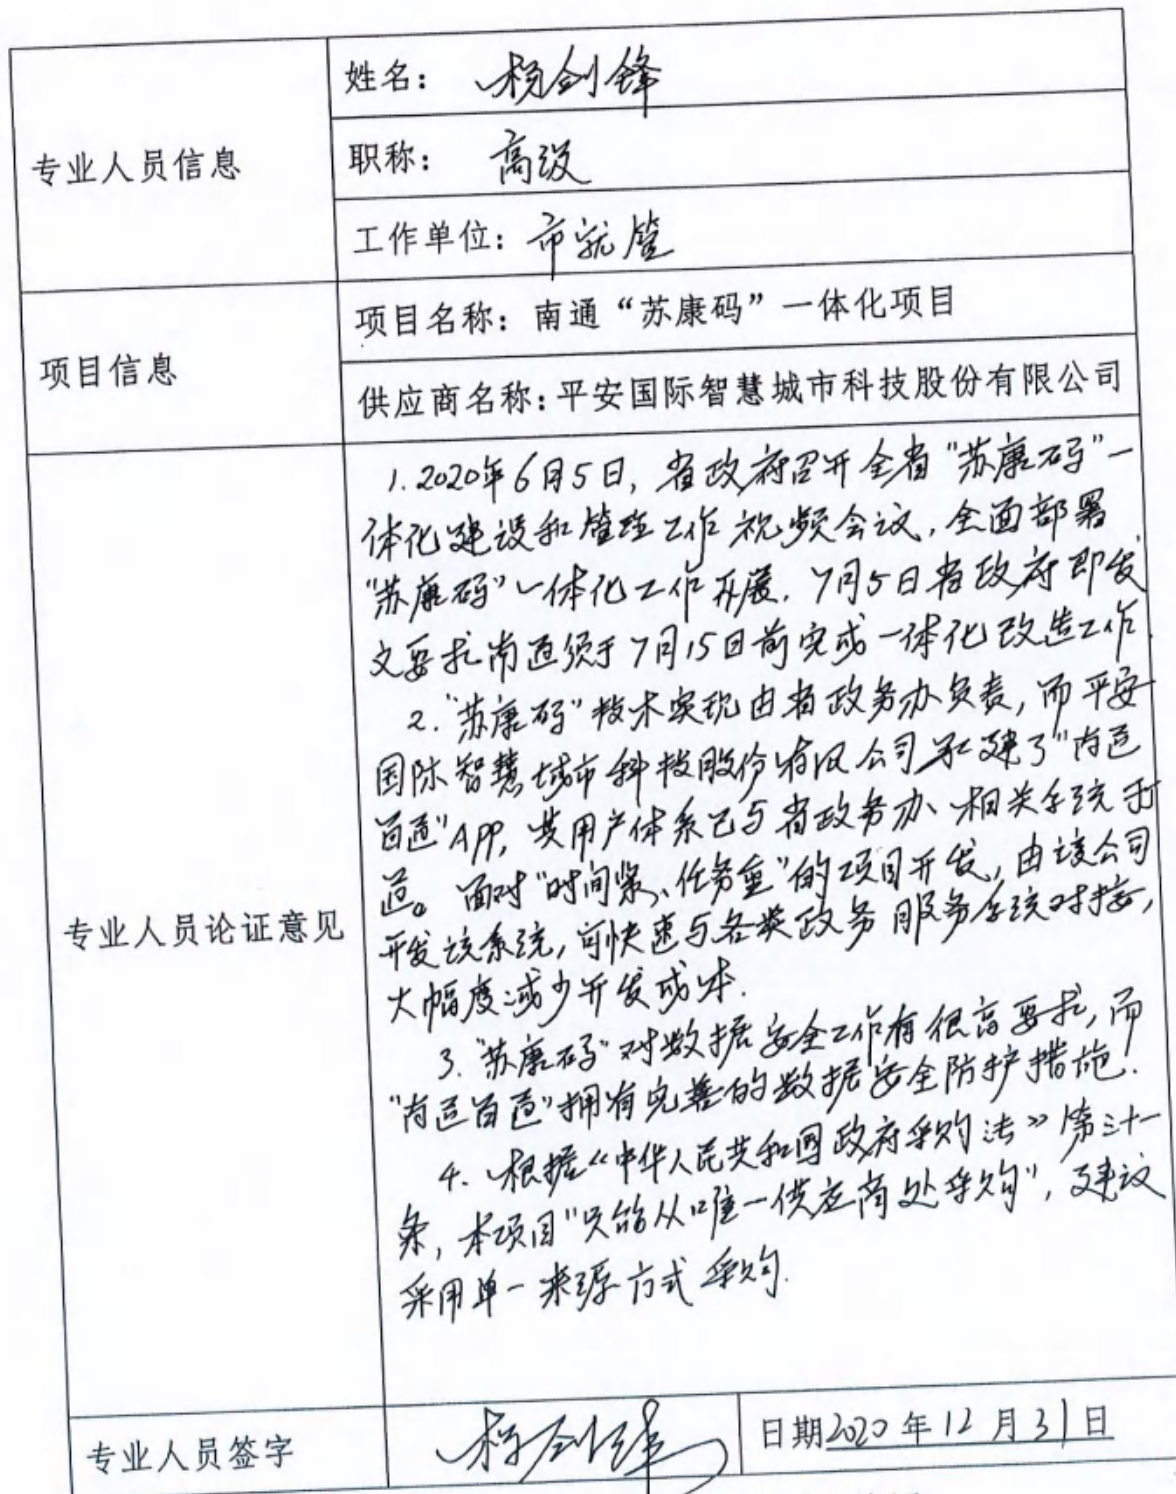 专业人员信息
姓名：杨剑锋
职称：高级
工作单位：市就管
项目信息
项目名称：南通“苏康码”一体化项目
供应商名称：平安国际智慧城市科技股份有限公司
专业人员论证意见
1.2020年6月5日，省政府召开全省“苏康码”一
体化建设和管理工作视频会议，全面部署
“苏康码”一体化工作开展。7月5日省政府即发
文要求南通须于7月15日前完成一体化改造工作。
2.“苏康码”技术实现由省政务办负责，而平安
国际智慧城市科技股份有限公司承建了“南通
百通”APP，其用户体系已与省政务办、相关系统打
通。面对“时间紧、任务重”的项目开发，由该公司
开发该系统，可快速与各类政务服务系统对接，
大幅度减少开发成本.
3.“苏康码”对数据安全工作有很高要求，而
“南通百通”拥有完善的数据安全防护措施.
4.根据《中华人民共和国政府采购法》第三十一
条，本项目“只能从唯一供应商处采购”，建议
采用单一来源方式采购.
专业人员签字
杨剑锋
日期2020年12月31日